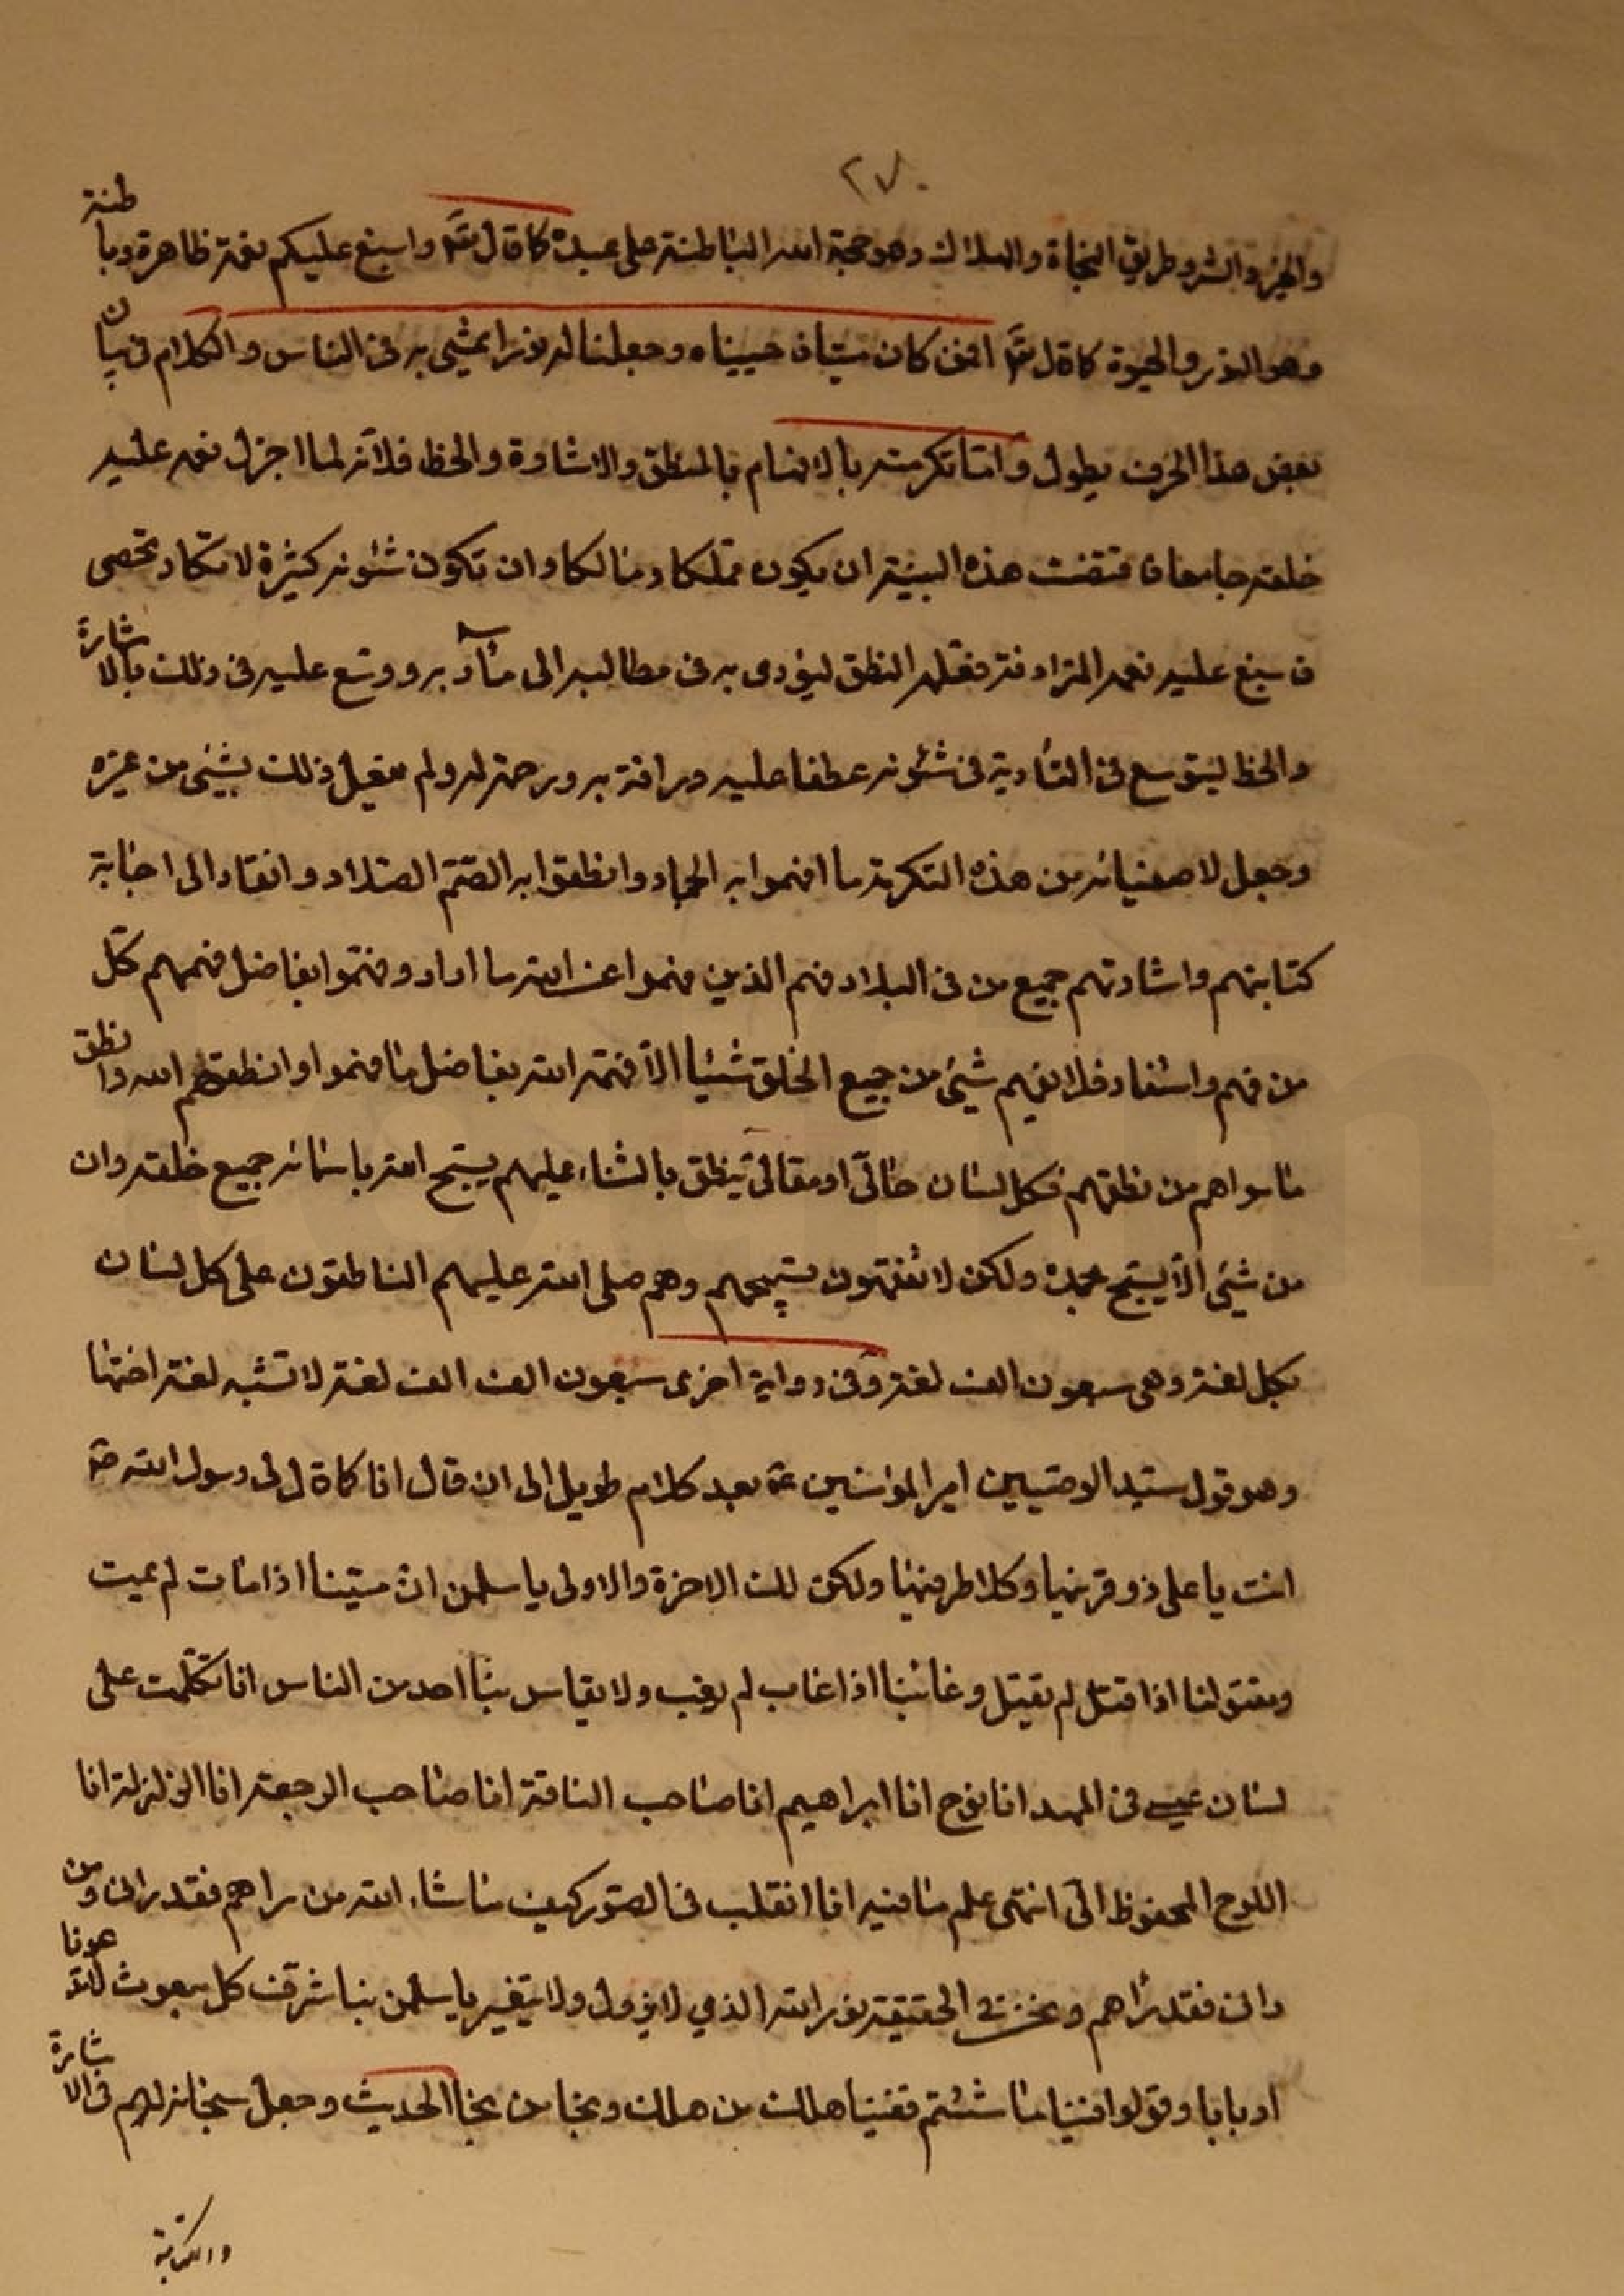 ٢٧٠
والخير والشر وطريق النجاة والهلاك وهو حجة الله الباطنة على عبده كما قال تعالى واسبغ عليكم نعمه ظاهرة وباطنة
وهو النور والحيوة كما قال تعالى افمن كان ميتا فاحييناه وجعلنا له نورا يمشي به في الناس والكلام في بيان
بعض هذا الحرف يطول وامّا تكرمته بالافهام بالمنطق والاشارة والخط فلأنه لما اجزل نعمه عليه
خلقه جامعا فاقتضت هذه البنية ان يكون متملكا ومالكا وان تكون شئونه كثيرة لا تكاد تحصى
فاسبغ عليه نعمه المترادفة فعلمه النطق ليؤدى به في مطالبه الى مآربه ووسع عليه في ذلك بالاشارة
والخط ليتوسع في التأدية في شئونه عطفا عليه ورافة به ورحمة له ولم يفعل ذلك بشيء من غيره
وجعل لاصفيائه من هذه التكرمة ما افهموا به الجماد وانطقوا به الصّم الصلاد وانقاد الى اجابة
كتابتهم واشارتهم جميع من في البلاد فهم الذين فهموا عن الله ما اراد وفهّموا بفاضل فهمهم كل
من فهم واستفاد فلا يفهم شيئ من جميع الخلق شيئا الّا فهّمه الله بفاضل ما فهموا وانطقهم الله وانطق
ما سواهم من نطقهم فكل لسان حالىّ او مقالىّ ينطق بالثناء عليهم يسبّح الله باسمائه جميع خلقه وان
من شيئ الّا يسبّح بحمده ولكن لا تفقهون تسبيحهم وهم صلى الله عليهم الناطقون على كل لسان
بكل لغة وهي سبعون الف لغة وفي رواية اخرى سبعون الف الف لغة لا تشبه لغة اختها
وهو قول سيّد الوصيّين امير المؤمنين ع بعد كلام طويل الى ان قال انا كما قال لى رسول الله ص
انت يا على ذو قرنيها وكلا طرفيها ولكن لك الاخرة والاولى يا سلمن انّ ميّتنا اذا مات لم يمت
ومقتولنا اذا قتل لم يقتل وغائبنا اذا غاب لم يغب ولا يقاس بنا احد من الناس انا تكلمت على
لسان عيسى في المهد انا نوح انا ابراهيم انا صاحب الناقة انا صاحب الرجعة انا الزلزلة انا
اللوح المحفوظ الىّ انتهى علم ما فيه انا انقلب في الصّور كيف ما شاء الله من راهم فقد رانى ومن
رانى فقد راهم ونحن في الحقيقة نور الله الذي لا يزول ولا يتغير يا سلمن بنا شرف كل مبعوث لا تدعونا
اربابا وقولوا فينا ما شئتم ففينا هلك من هلك ونجا من نجا الحديث وجعل سبحانه لهم في الاشارة
والكتابة